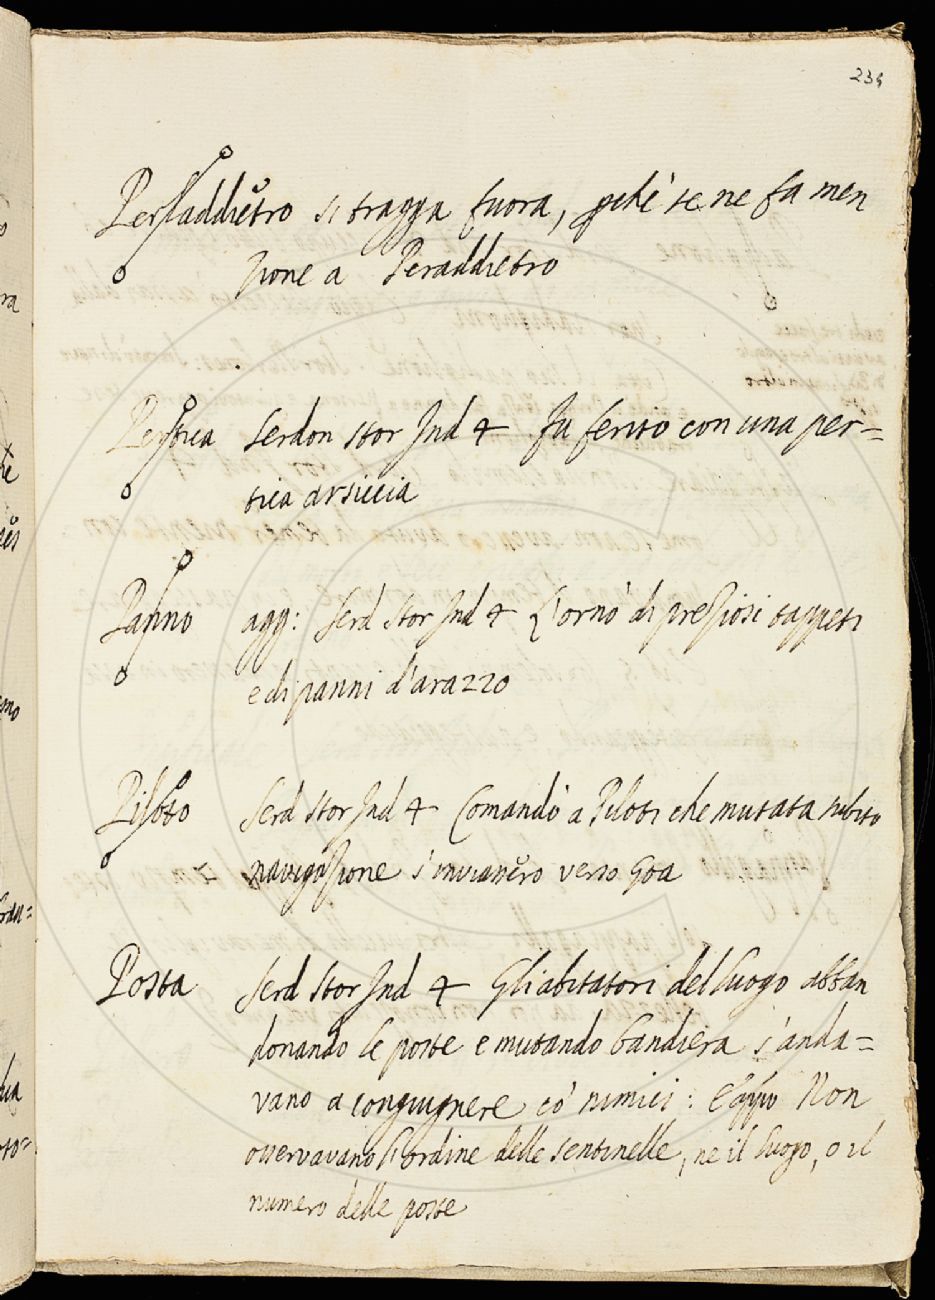 234
Per l'addietro si tragga fuora, pchè se ne fa men
zione a Peraddietro
Pertica Serdon Stor Ind 4 Fu ferito con una per=
tica arsiccia
Panno agg: Serd Stor Ind 4 L'ornò di preziosi tappeti
e di panni d'arazzo
Piloto Serd Stor Ind 4 Comandò a Piloti che mutata subito
navigazione s'inviassero verso Goa
Posta Serd Stor Ind 4 Gli abitatori del luogo abban
donando le poste e mutando bandiera s'anda=
vano a congiugnere co' nimici: Non
osservavano l'ordine delle sentinelle, ne il luogo, o il
numero delle poste